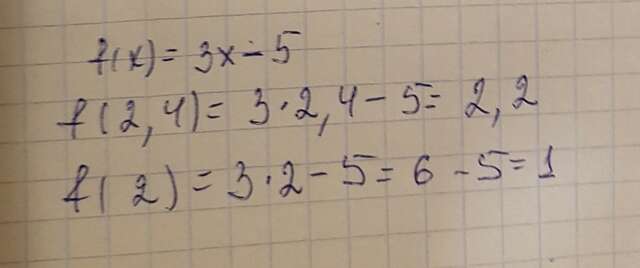 f(x) = 3x - 5
f(2,4) = 3·2,4 - 5 = 2,2
f(2) = 3·2 - 5 = 6 - 5 = 1